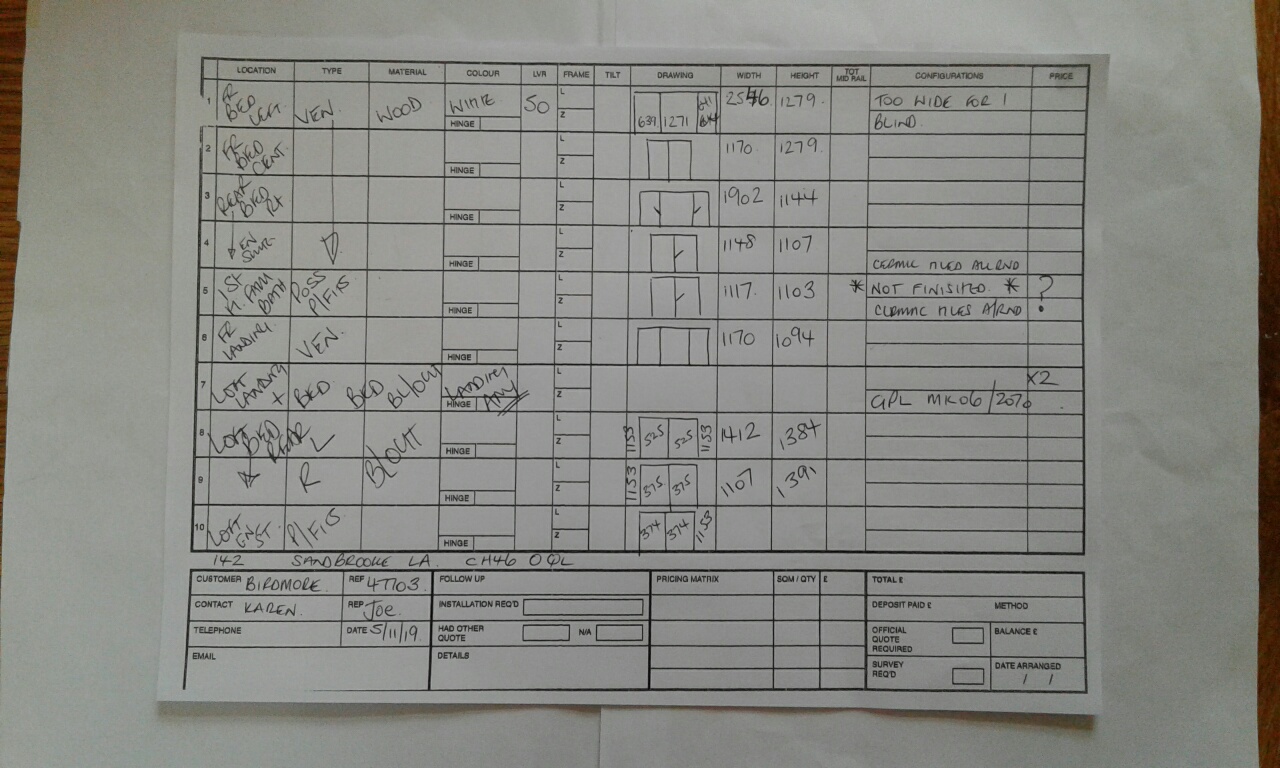 LOCATION TYPE MATERIAL COLOUR LVR FRAME TILT DRAWING WIDTH HEIGHT TOT MID RAIL CONFIGURATIONS PRICE
1 FR BED LEFT VEN. WOOD WHITE HINGE 50 L Z 639 1271 2546 1279. TOO WIDE FOR 1
BLIND
2 FR BED CENT. HINGE L Z 1170 1279.
3 REAR BED RT HINGE L Z 1902 1144
4 EN SUITE HINGE L Z 1148 1107
CERMIC TILED ALL RND
5 1ST FAM BATH POSS P/FITS HINGE L Z 1117. 1103 * NOT FINISHED. * ?
CERMIC TILES A/RND
6 FR LANDING. VEN. HINGE L Z 1170 1094
7 LOFT LANDING + BED BED B/OUT LANDING ANY HINGE L Z X2
GPL MK06/2070
8 LOFT BED REAR L B/OUT HINGE L Z 1153 525 525 1153 1412 1384
9 R HINGE L Z 1153 375 375 1107 1391
10 LOFT ENST P/FITS HINGE L Z 374 374 1153
142 SANDBROOKE LA. CH46 0QL
CUSTOMER BIRDMORE. REF 47703 FOLLOW UP PRICING MATRIX SQM / QTY £ TOTAL £
CONTACT KAREN. REP Joe. INSTALLATION REQ'D DEPOSIT PAID £ METHOD
TELEPHONE DATE 5/11/19 HAD OTHER QUOTE N/A OFFICIAL QUOTE REQUIRED BALANCE £
EMAIL DETAILS SURVEY REQ'D DATE ARRANGED
/ /